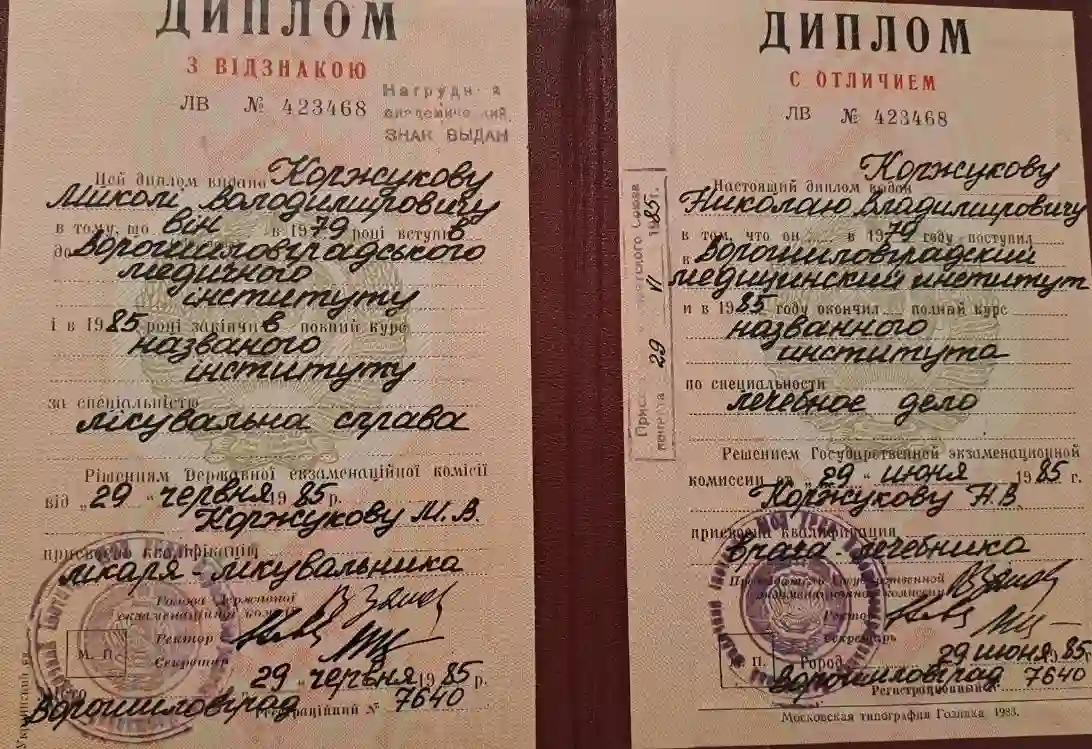 ДИПЛОМ
З ВІДЗНАКОЮ
ЛВ № 423468
Нагрудн й
академичес ий
ЗНАК ВЫДАН
Цей диплом видано Коржукову
Миколі Володимировичу
в тому, що він в 1979 році вступив
до Ворошиловградського
медичного
інституту
і в 1985 році закінчив повний курс
названого
інституту
за спеціальністю
лікувальна справа
Рішенням Державної екзаменаційної комісії
від „29 “ червня 1985 р.
Коржукову М.В.
присвоєно кваліфікацію
лікаря-лікувальника
Голова Державної
екзаменаційної комісії
Ректор
М. П.
Секретар
29 червня 1985 р.
Місто Ворошиловград
Реєстраційний № 7640
ДИПЛОМ
С ОТЛИЧИЕМ
ЛВ № 423468
Настоящий диплом выдан Коржукову
Николаю Владимировичу
в том, что он в 1979 году поступил
в Ворошиловградский
медицинский институт
и в 1985 году окончил полный курс
названного
института
по специальности
лечебное дело
Решением Государственной экзаменационной
комиссии от „29 “ июня 1985 г.
Коржукову Н.В.
присвоена квалификация
врача-лечебника
Председатель Государственной
экзаменационной комиссии
Ректор
Секретарь
М. П.
Город Ворошиловград
29 июня 1985 г.
Регистрационный № 7640
Московская типография Гознака 1983.
29 VI 1985 г.